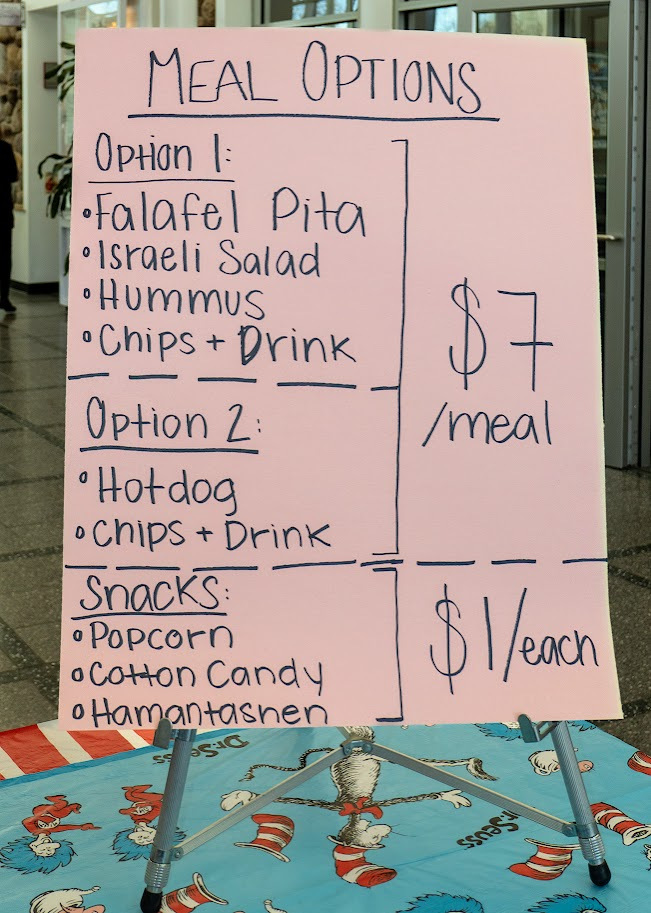 MEAL OPTIONS
Option 1:
•Falafel Pita
•Israeli Salad
•Hummus
•Chips + Drink
$7
/meal
Option 2:
•Hotdog
•Chips + Drink
Snacks:
•Popcorn
•Cotton Candy
•Hamantashen
$1/each
Dr. Seuss
Dr. Seuss
Dr. Seuss